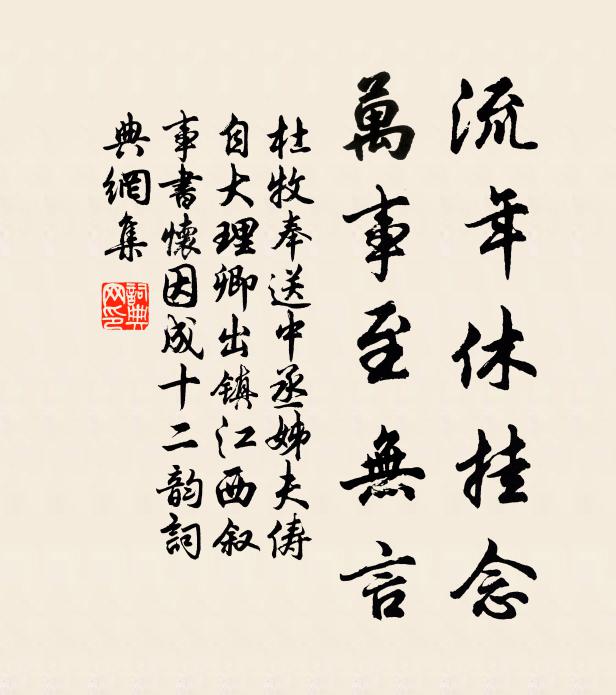 流年休挂念
萬事至無言
杜牧奉送中丞姊夫俦
自大理卿出镇江西叙
事書懷因成十二韵詞
典網集
詞典
网印